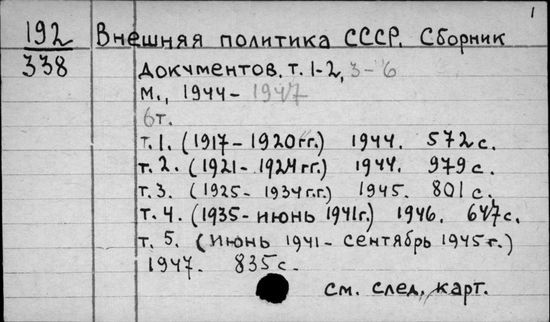 1
192 Внешняя политика СССР. Сборник
338 документов. т. 1-2, 3-6
М., 1944- 1947
6т.
т. 1. (1917 - 1920 гг.) 1944. 572 с.
т. 2. (1921 - 1924 гг.) 1944. 979 с.
т. 3. (1925 - 1934 г.г.) 1945. 801 с.
т. 4. (1935 - июнь 1941 г.) 1946. 647 с.
т. 5. (июнь 1941 - сентябрь 1945 г.)
1947. 835 с.
см. след. карт.